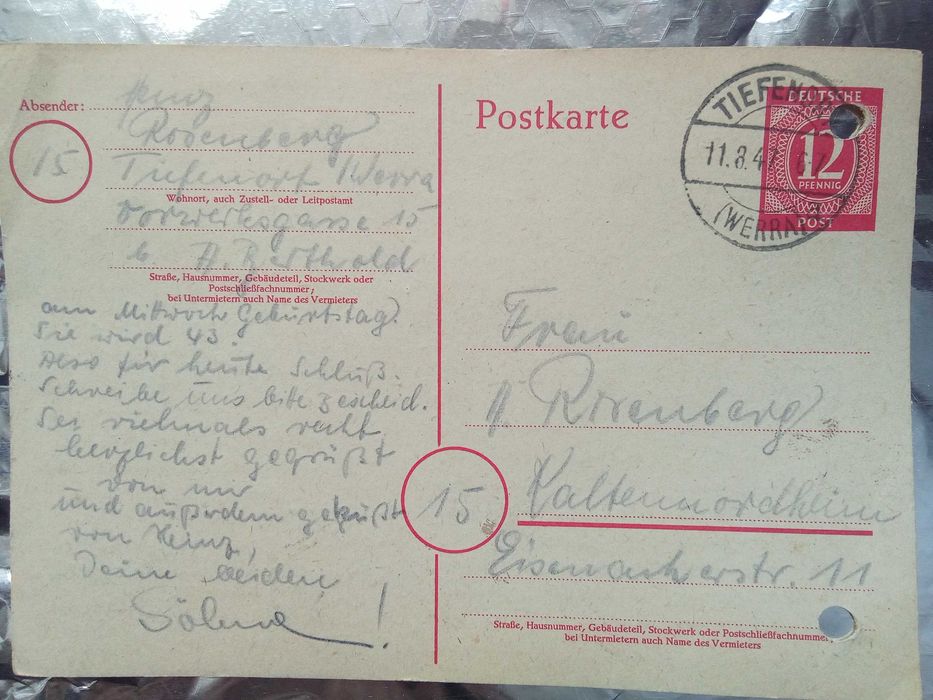 Absender: Heinz
Rosenberg
15
Tiefenort Werra
Wohnort, auch Zustell- oder Leitpostamt
Vorwerksgasse 15
b. A. Berthold
Straße, Hausnummer, Gebäudeteil, Stockwerk oder
Postschließfachnummer;
bei Untermietern auch Name des Vermieters
am Mittwoch Geburtstag.
Sie wird 43.
Also für heute Schluß.
Schreibe uns bitte Bescheid.
Sei vielmals recht
herzlichst gegrüßt
von mir
und außerdem geküßt
von Heinz,
Deine beiden
Söhne!
Postkarte
TIEFENO
11.8.4
(WERRA)
DEUTSCHE
12
PFENNIG
POST
Frau
A. Rosenberg
15
Kaltennordheim
Eisenacherstr. 11
Straße, Hausnummer, Gebäudeteil, Stockwerk oder Postschließfachnummer;
bei Untermietern auch Name des Vermieters